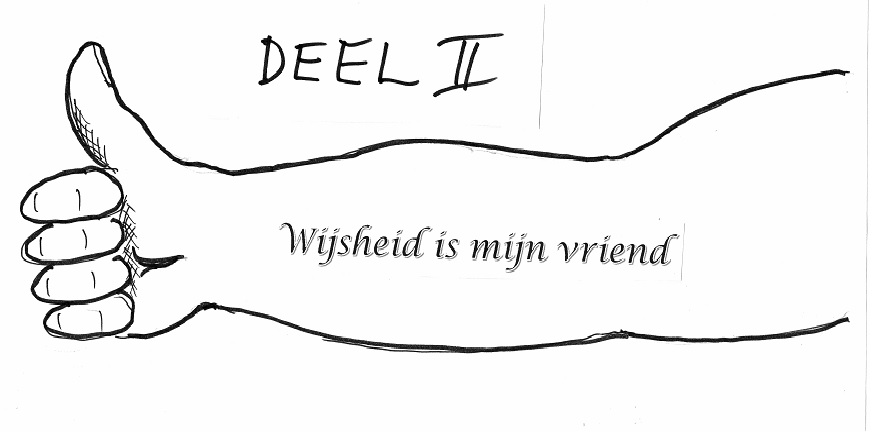 DEEL II
Wijsheid is mijn vriend